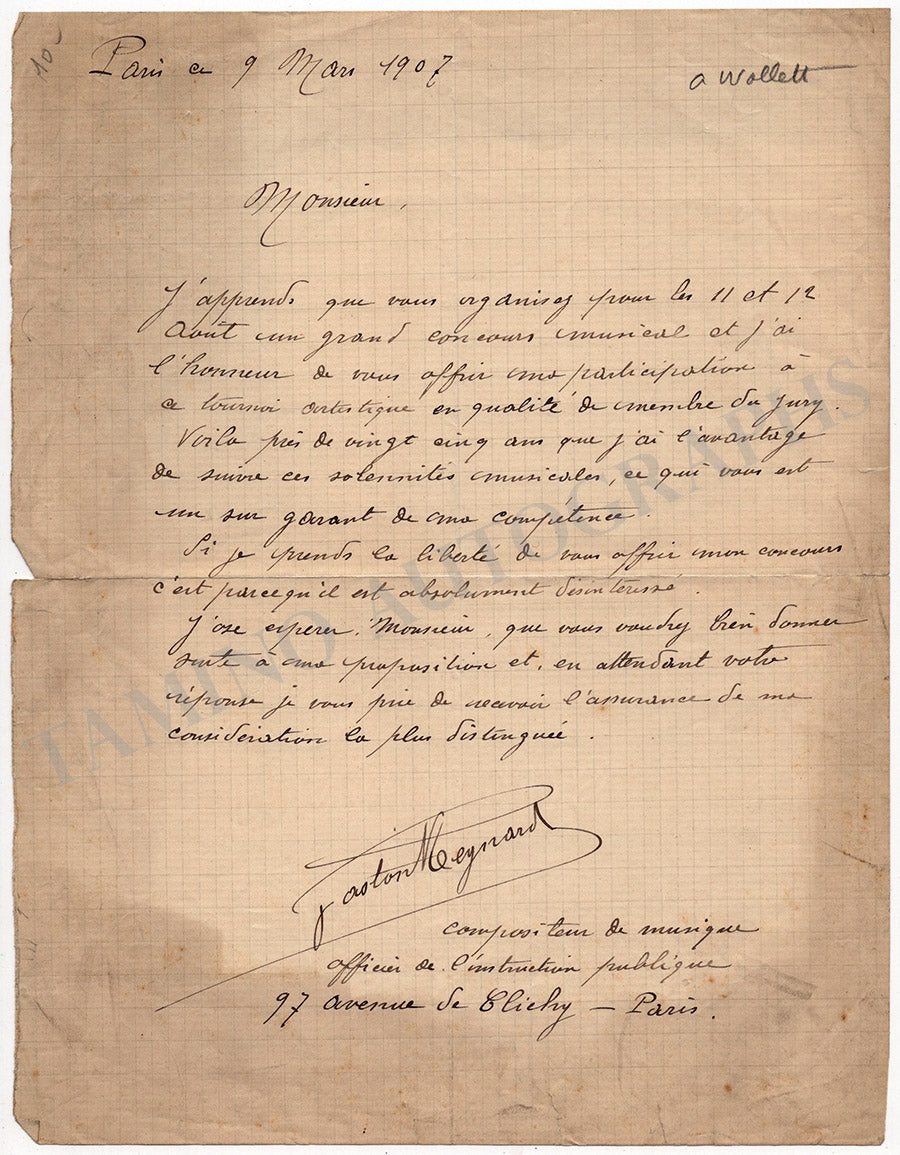 10
Paris ce 9 Mars 1907
a Wollett
Monsieur,
J'apprends que vous organisez pour les 11 et 12
Août un grand concours musical et j'ai
l'honneur de vous offrir ma participation à
ce tournoi artistique en qualité de membre du Jury.
Voila près de vingt cinq ans que j'ai l'avantage
de suivre ces solennités musicales, ce qui vous est
un sur garant de ma compétence.
Si je prends la liberté de vous offrir mon concours
c'est parcequ'il est absolument désintéressé.
J'ose espérer, Monsieur, que vous voudrez bien donner
suite à ma proposition et, en attendant votre
réponse je vous prie de recevoir l'assurance de ma
considération la plus distinguée.
Gaston Meynard
compositeur de musique
officier de l'instruction publique
97 avenue de Clichy — Paris.
TAMINO AUTOGRAPHS